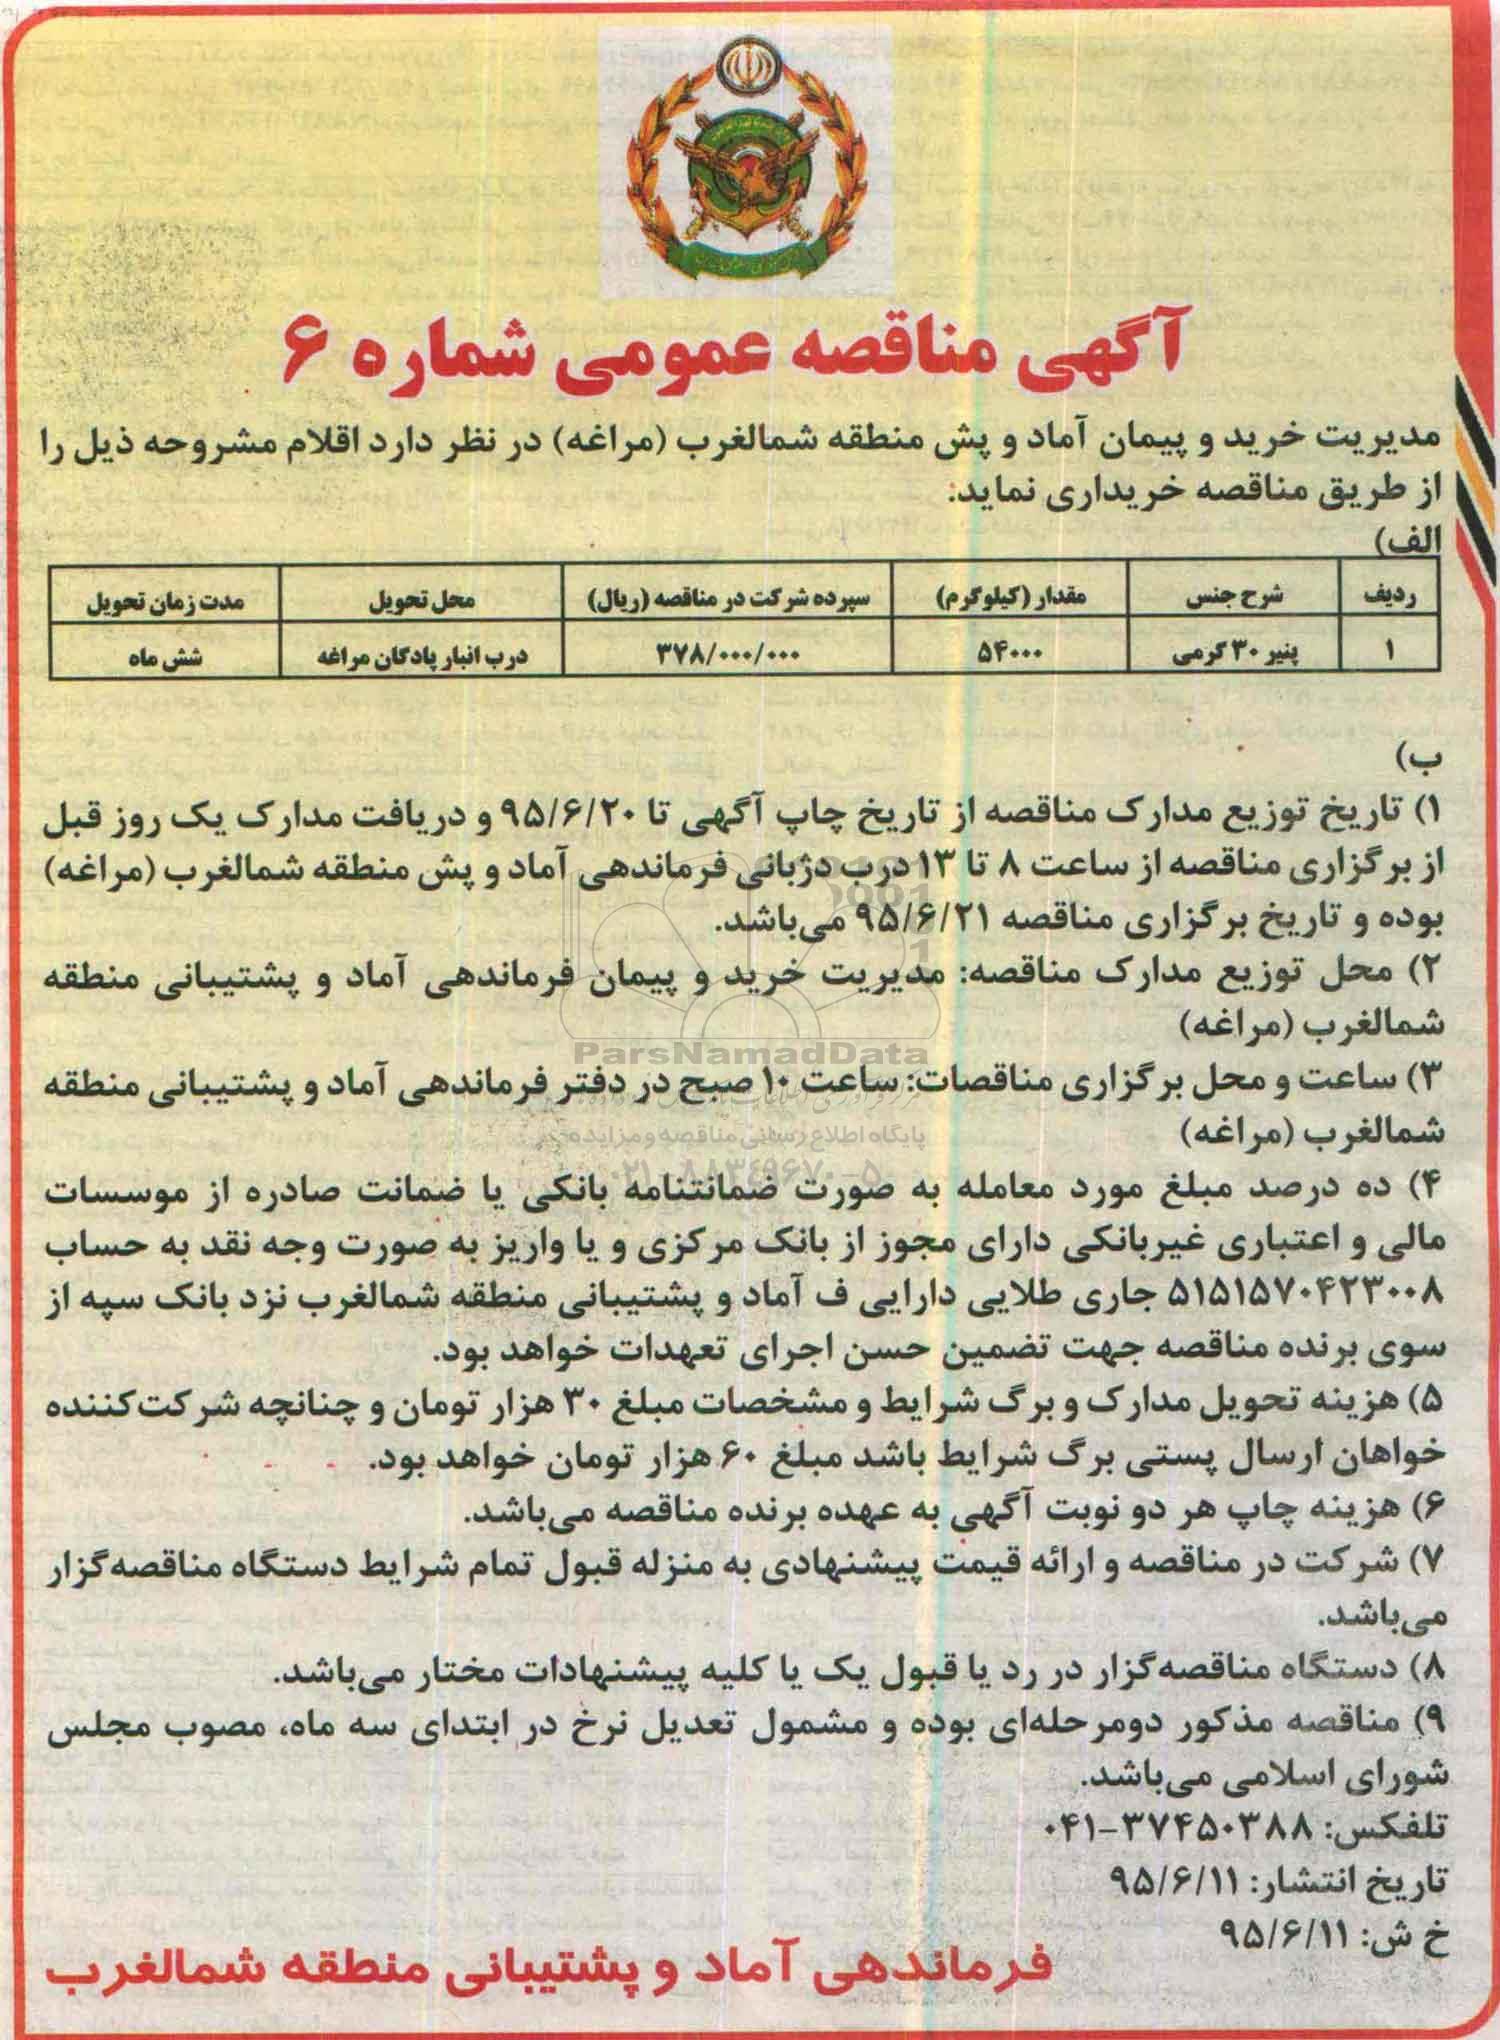 آگهی مناقصه عمومی شماره ۶
مدیریت خرید و پیمان آماد و پش منطقه شمالغرب (مراغه) در نظر دارد اقلام مشروحه ذیل را
از طریق مناقصه خریداری نماید:
الف)
ردیف شرح جنس مقدار (کیلوگرم) سپرده شرکت در مناقصه (ریال) محل تحویل مدت زمان تحویل
۱ پنیر ۳۰ گرمی ۵۴۰۰۰ ۳۷۸/۰۰۰/۰۰۰ درب انبار پادگان مراغه شش ماه
ب)
۱) تاریخ توزیع مدارک مناقصه از تاریخ چاپ آگهی تا ۹۵/۶/۲۰ و دریافت مدارک یک روز قبل
از برگزاری مناقصه از ساعت ۸ تا ۱۳ درب دژبانی فرماندهی آماد و پش منطقه شمالغرب (مراغه)
بوده و تاریخ برگزاری مناقصه ۹۵/۶/۲۱ می‌باشد.
۲) محل توزیع مدارک مناقصه: مدیریت خرید و پیمان فرماندهی آماد و پشتیبانی منطقه
شمالغرب (مراغه)
ParsNamadData
۳) ساعت و محل برگزاری مناقصات: ساعت ۱۰ صبح در دفتر فرماندهی آماد و پشتیبانی منطقه
شمالغرب (مراغه)
پایگاه اطلاع رسانی مناقصه و مزایده
۰۲۱-۸۸۳۴۹۶۷۰-۵
۴) ده درصد مبلغ مورد معامله به صورت ضمانتنامه بانکی یا ضمانت صادره از موسسات
مالی و اعتباری غیربانکی دارای مجوز از بانک مرکزی و یا واریز به صورت وجه نقد به حساب
۵۱۵۱۵۷۰۴۲۳۰۰۸ جاری طلایی دارایی ف آماد و پشتیبانی منطقه شمالغرب نزد بانک سپه از
سوی برنده مناقصه جهت تضمین حسن اجرای تعهدات خواهد بود.
۵) هزینه تحویل مدارک و برگ شرایط و مشخصات مبلغ ۳۰ هزار تومان و چنانچه شرکت‌کننده
خواهان ارسال پستی برگ شرایط باشد مبلغ ۶۰ هزار تومان خواهد بود.
۶) هزینه چاپ هر دو نوبت آگهی به عهده برنده مناقصه می‌باشد.
۷) شرکت در مناقصه و ارائه قیمت پیشنهادی به منزله قبول تمام شرایط دستگاه مناقصه‌گزار
می‌باشد.
۸) دستگاه مناقصه‌گزار در رد یا قبول یک یا کلیه پیشنهادات مختار می‌باشد.
۹) مناقصه مذکور دومرحله‌ای بوده و مشمول تعدیل نرخ در ابتدای سه ماه، مصوب مجلس
شورای اسلامی می‌باشد.
تلفکس: ۳۷۴۵۰۳۸۸-۰۴۱
تاریخ انتشار: ۹۵/۶/۱۱
خ ش: ۹۵/۶/۱۱
فرماندهی آماد و پشتیبانی منطقه شمالغرب